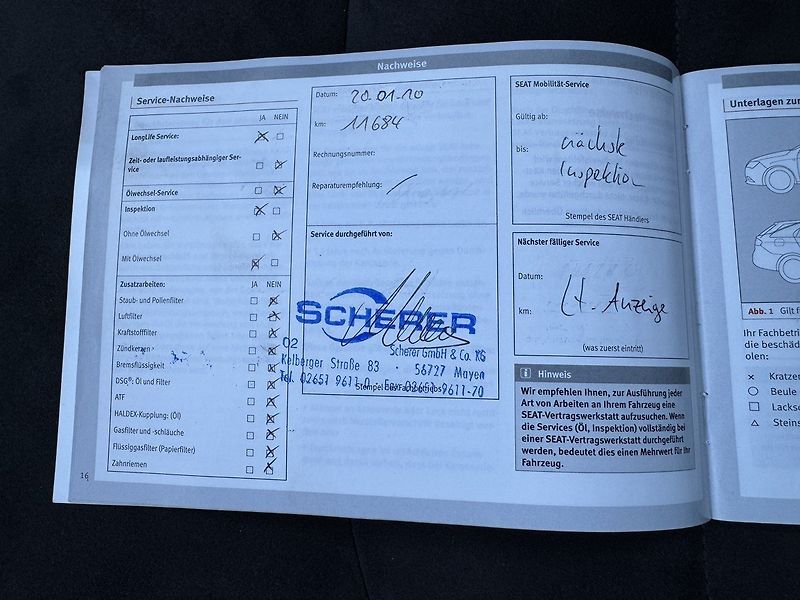 Nachweise
Service-Nachweise
JA NEIN
LongLife Service:
Zeit- oder laufleistungsabhängiger Ser-
vice
Ölwechsel-Service
Inspektion
Ohne Ölwechsel
Mit Ölwechsel
Zusatzarbeiten: JA NEIN
Staub- und Pollenfilter
Luftfilter
Kraftstofffilter
Zündkerzen
Bremsflüssigkeit
DSG®: Öl und Filter
ATF
HALDEX-Kupplung: (Öl)
Gasfilter und -schläuche
Flüssiggasfilter (Papierfilter)
Zahnriemen
16
Datum: 20.01.20
km: 11684
Rechnungsnummer:
Reparaturempfehlung:
Service durchgeführt von:
SCHERER
02
Scherer GmbH & Co. KG
Kelberger Straße 83 · 56727 Mayen
Tel. 02651 9611-0 · Fax 02651 9611-70
Stempel des Fachbetriebs
SEAT Mobilität-Service
Gültig ab:
bis: nächste
Inspektion
Stempel des SEAT Händlers
Nächster fälliger Service
Datum:
km: Lt. Anzeige
(was zuerst eintritt)
i Hinweis
Wir empfehlen Ihnen, zur Ausführung jeder
Art von Arbeiten an Ihrem Fahrzeug eine
SEAT-Vertragswerkstatt aufzusuchen. Wenn
die Services (Öl, Inspektion) vollständig bei
einer SEAT-Vertragswerkstatt durchgeführt
werden, bedeutet dies einen Mehrwert für Ihr
Fahrzeug.
Unterlagen zur
Abb. 1 Gilt f
Ihr Fachbetri
die beschäd
olen:
× Kratzer
Beule
Lacksc
Steins